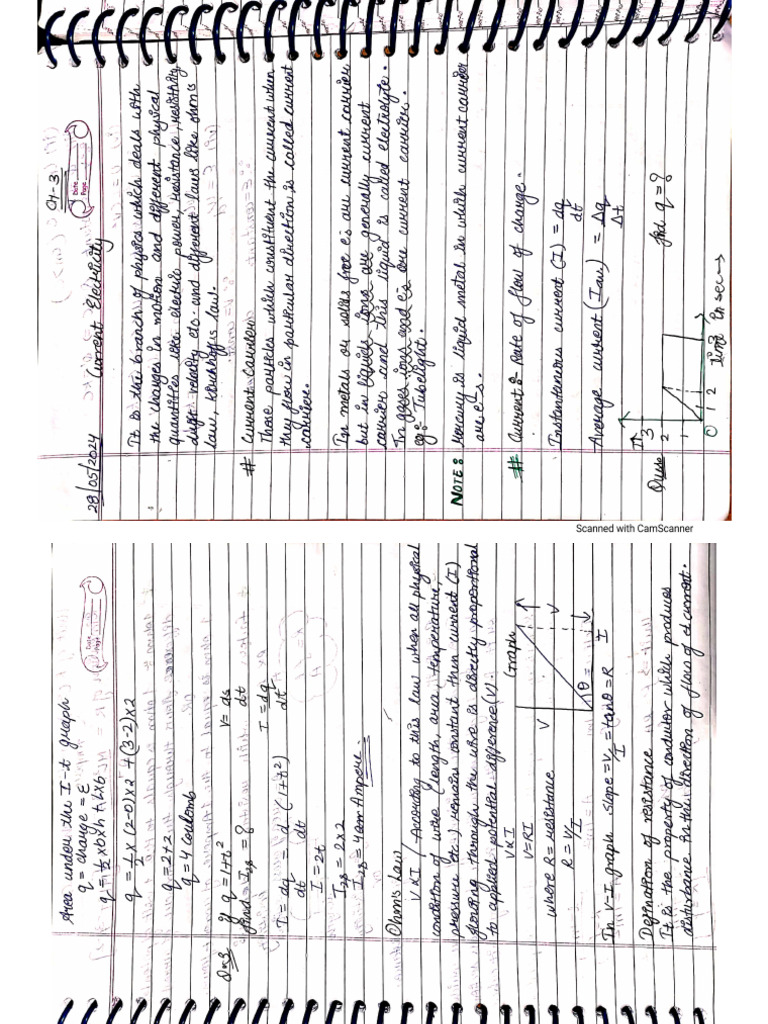 28/05/2024
Current Electricity
Ch-3
Date
Page
It is the branch of physics which deals with
the charges in motion and different physical
quantities like electric power, resistance, resistivity
drift velocity etc. and different laws like ohm's
law, Kirchhoff's law.
# Current Carriers
Those particles which constituent the current when
they flow in particular direction is called current
carrier.
In metals or solids free e's are current carrier
but in liquids ions are generally current
carrier and this liquid is called electrolyte.
In gases ions and e's are current carrier.
eg: Tubelight.
NOTE: Mercury is liquid metal in which current carrier
are e-s.
# Current: Rate of flow of charge.
Instantaneous current (I) = dq/dt
Average current (Iav) = Δq/Δt
Ques
I
3
2
1
0 1 2 3
Time in sec→
find q = ?
Scanned with CamScanner
Date
Page
Area under the I-t graph
q = charge = Σ
q = 1/2 x b x h + L x b
q = 1/2 x (2-0) x 2 + (3-2) x 2
q = 2+2
q = 4 Coulomb
Q→2 If q = 1+t²
find I2s = ?
V = ds/dt
I = dq/dt = d/dt (1+t²)
I = dq/dt
I = 2t
I2s = 2x2
I2s = 4 am Ampere
Ohm's Law
V ∝ I (According to this law when all physical
condition of wire (length, area, temperature,
pressure etc.) remains constant then current (I)
flowing through the wire is directly proportional
to applied potential difference (V).
V ∝ I
V = RI
where R = resistance
R = V/I
Graph
V
V
θ
I
In V-I graph slope = V/I = tanθ = R
Defination of resistance
It is the property of conductor which produces
disturbance in the direction of flow of current.